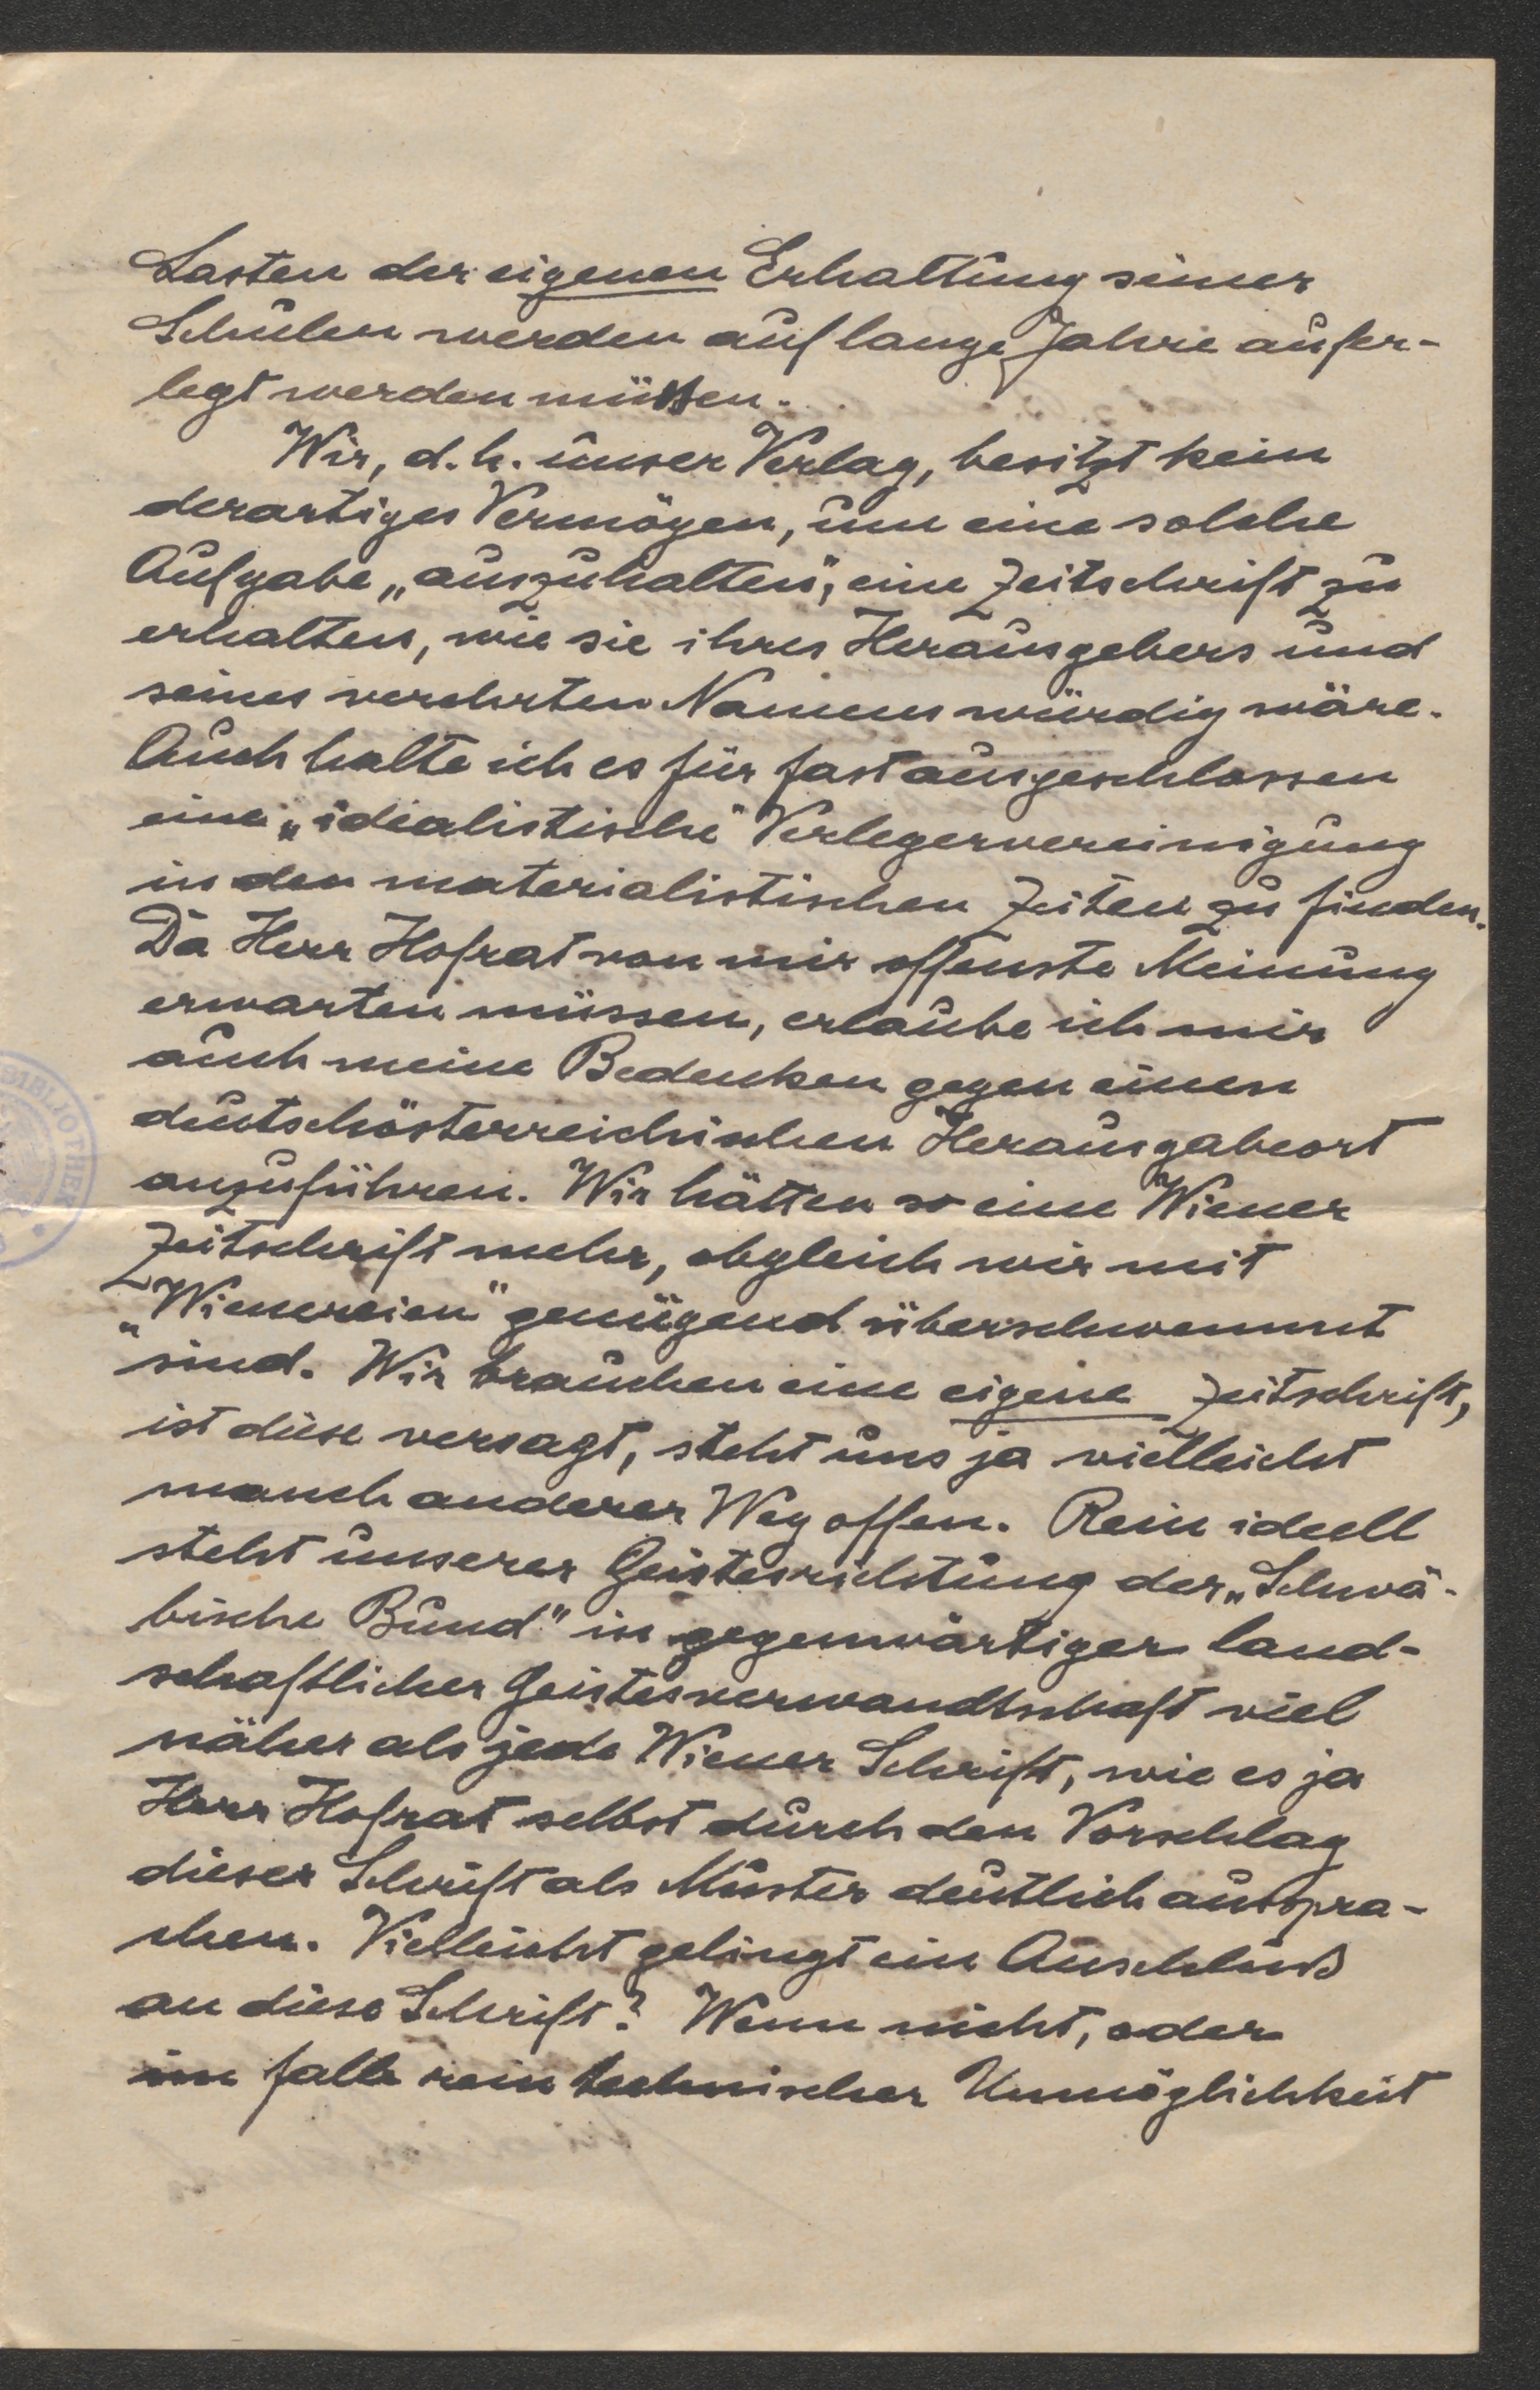 Lasten der eigenen Erhaltung seiner
Schulen werden auf lange Jahre aufer-
legt werden müssen.
Wir, d. h. unser Verlag, besitzt kein
derartiges Vermögen, um eine solche
Aufgabe „auszuhalten", eine Zeitschrift zu
erhalten, wie sie ihres Herausgebers und
seines verehrten Namens würdig wäre.
Auch halte ich es für fast ausgeschlossen
eine „idealistische" Verlegervereinigung
in den materialistischen Zeiten zu finden.
Da Herr Hofrat von mir offenste Meinung
erwarten müssen, erlaube ich mir
auch meine Bedenken gegen einen
deutschösterreichischen Herausgabeort
anzuführen. Wir hätten so eine Wiener
Zeitschrift mehr, obgleich wir mit
„Wienereien" genügend überschwemmt
sind. Wir brauchen eine eigene Zeitschrift,
ist diese versagt, steht uns ja vielleicht
manch anderer Weg offen. Rein ideell
steht unserer Geistesrichtung der „Schwä-
bische Bund" in gegenwärtiger land-
schaftlicher Geistesverwandtschaft viel
näher als jede Wiener Schrift, wie es ja
Herr Hofrat selbst durch den Vorschlag
dieser Schrift als Muster deutlich ausspra-
chen. Vielleicht gelingt ein Anschluß
an diese Schrift? Wenn nicht, oder
im falle rein technischer Unmöglichkeit
BIBLIOTHEK